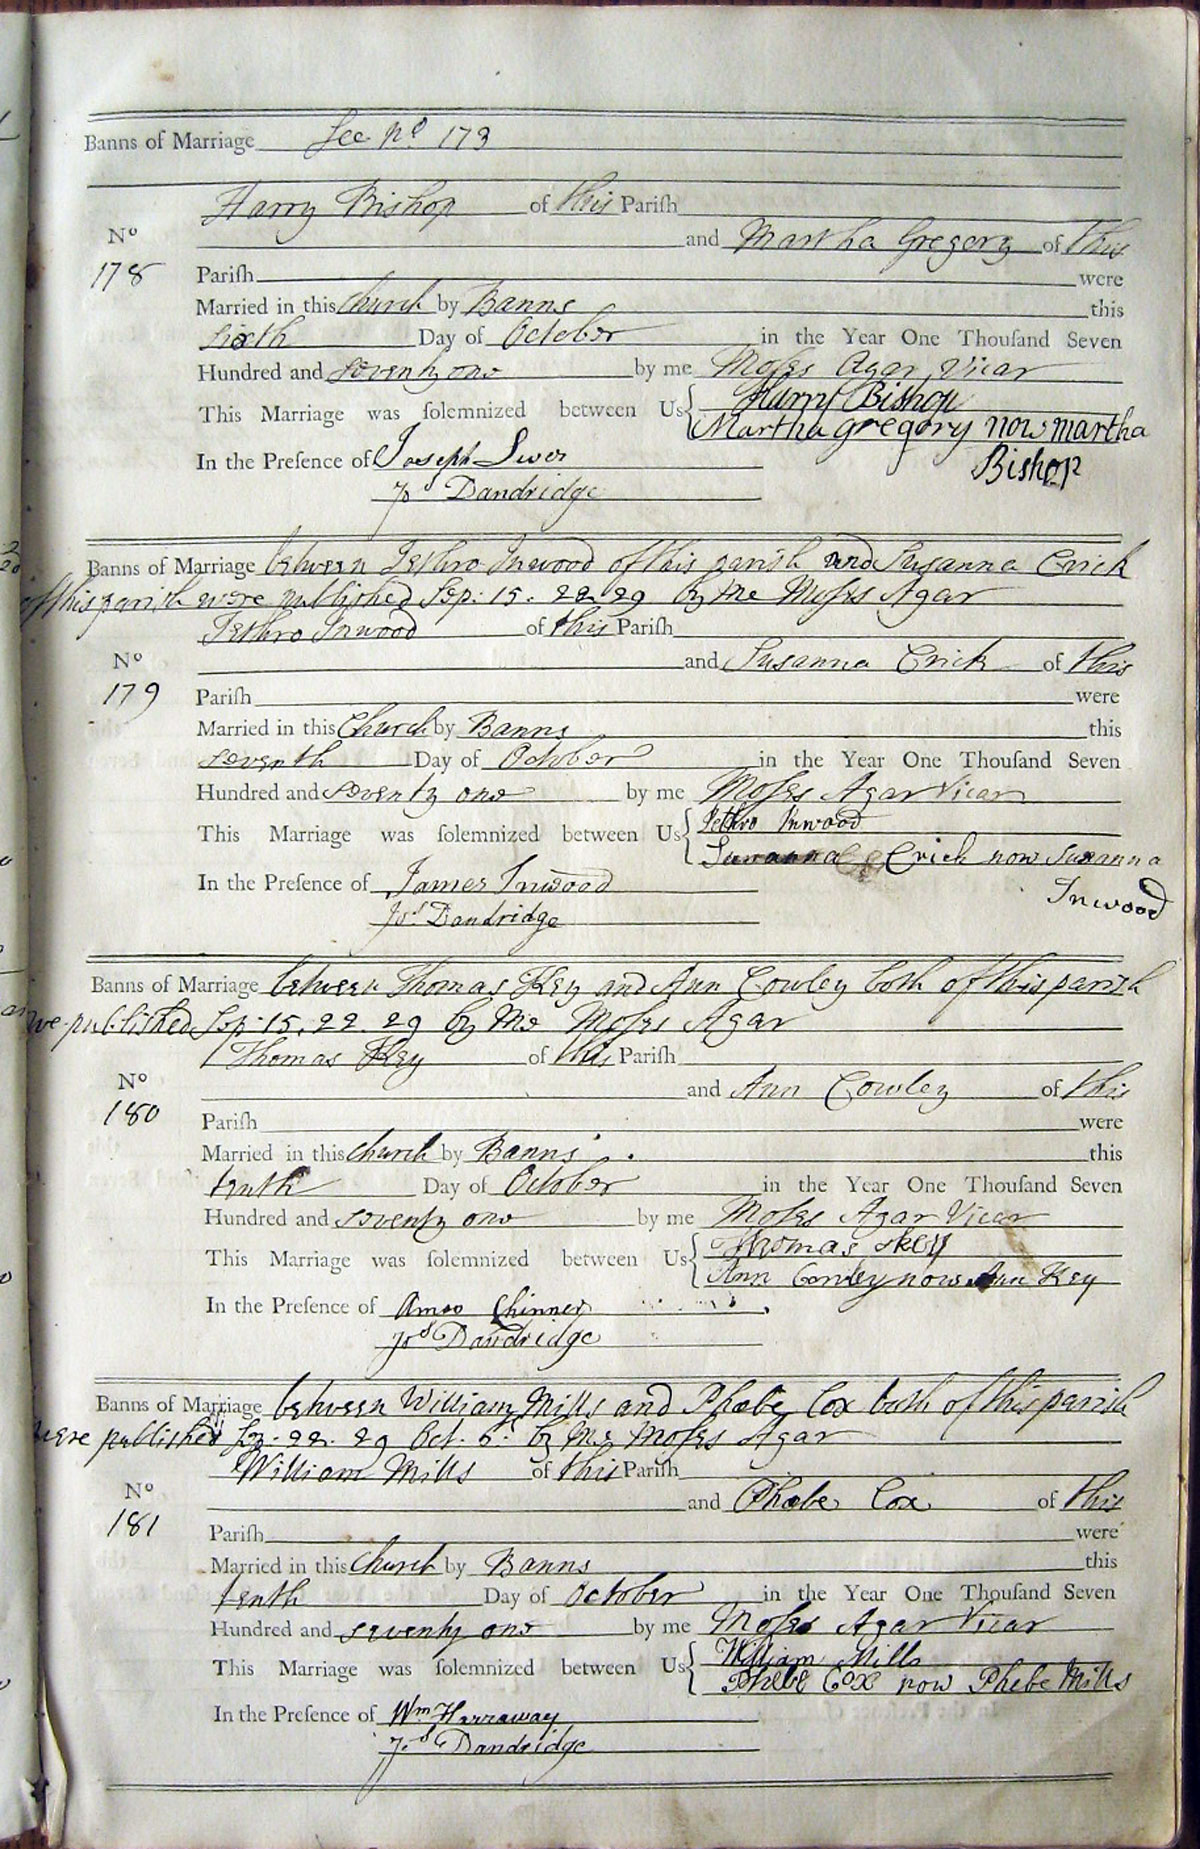 Banns of Marriage See No 173
Harry Bishop of this Pariſh
No and Martha Gregory of this
178 Pariſh were
Married in this Church by Banns this
sixth Day of October in the Year One Thouſand Seven
Hundred and seventy one by me Moſes Agar Vicar
This Marriage was ſolemnized between Us { Harry Bishop
Martha gregory now martha
Bishop
In the Preſence of Joseph
Jos Dandridge
Banns of Marriage between Jethro Inwood of this parish and Susanna Crick
of this parish were published Sep: 15. 22. 29 by me Moſes Agar
Jethro Inwood of this Pariſh
No and Susanna Crick of this
179 Pariſh were
Married in this Church by Banns this
seventh Day of October in the Year One Thouſand Seven
Hundred and seventy one by me Moſes Agar Vicar
This Marriage was ſolemnized between Us { Jethro Inwood
Susanna Crick now Susanna
Inwood
In the Preſence of James Inwood
Jos Dandridge
Banns of Marriage between Thomas Key and Ann Cowley both of this parish
were published Sep: 15. 22. 29 by Me Moſes Agar
Thomas Key of this Pariſh
No and Ann Cowley of this
180 Pariſh were
Married in this Church by Banns this
tenth Day of October in the Year One Thouſand Seven
Hundred and seventy one by me Moſes Agar Vicar
This Marriage was ſolemnized between Us { Thomas Key
Ann Cowley now Ann Key
In the Preſence of Amos Chinner
Jos Dandridge
Banns of Marriage between William Mills and Phœbe Cox both of this parish
were published Sep. 22. 29 Oct. 6. by Me Moſes Agar
William Mills of this Pariſh
No and Phœbe Cox of this
181 Pariſh were
Married in this Church by Banns this
tenth Day of October in the Year One Thouſand Seven
Hundred and seventy one by me Moſes Agar Vicar
This Marriage was ſolemnized between Us { William Mills
Phebe Cox now Phebe Mills
In the Preſence of Wm Harraway
Jos Dandridge